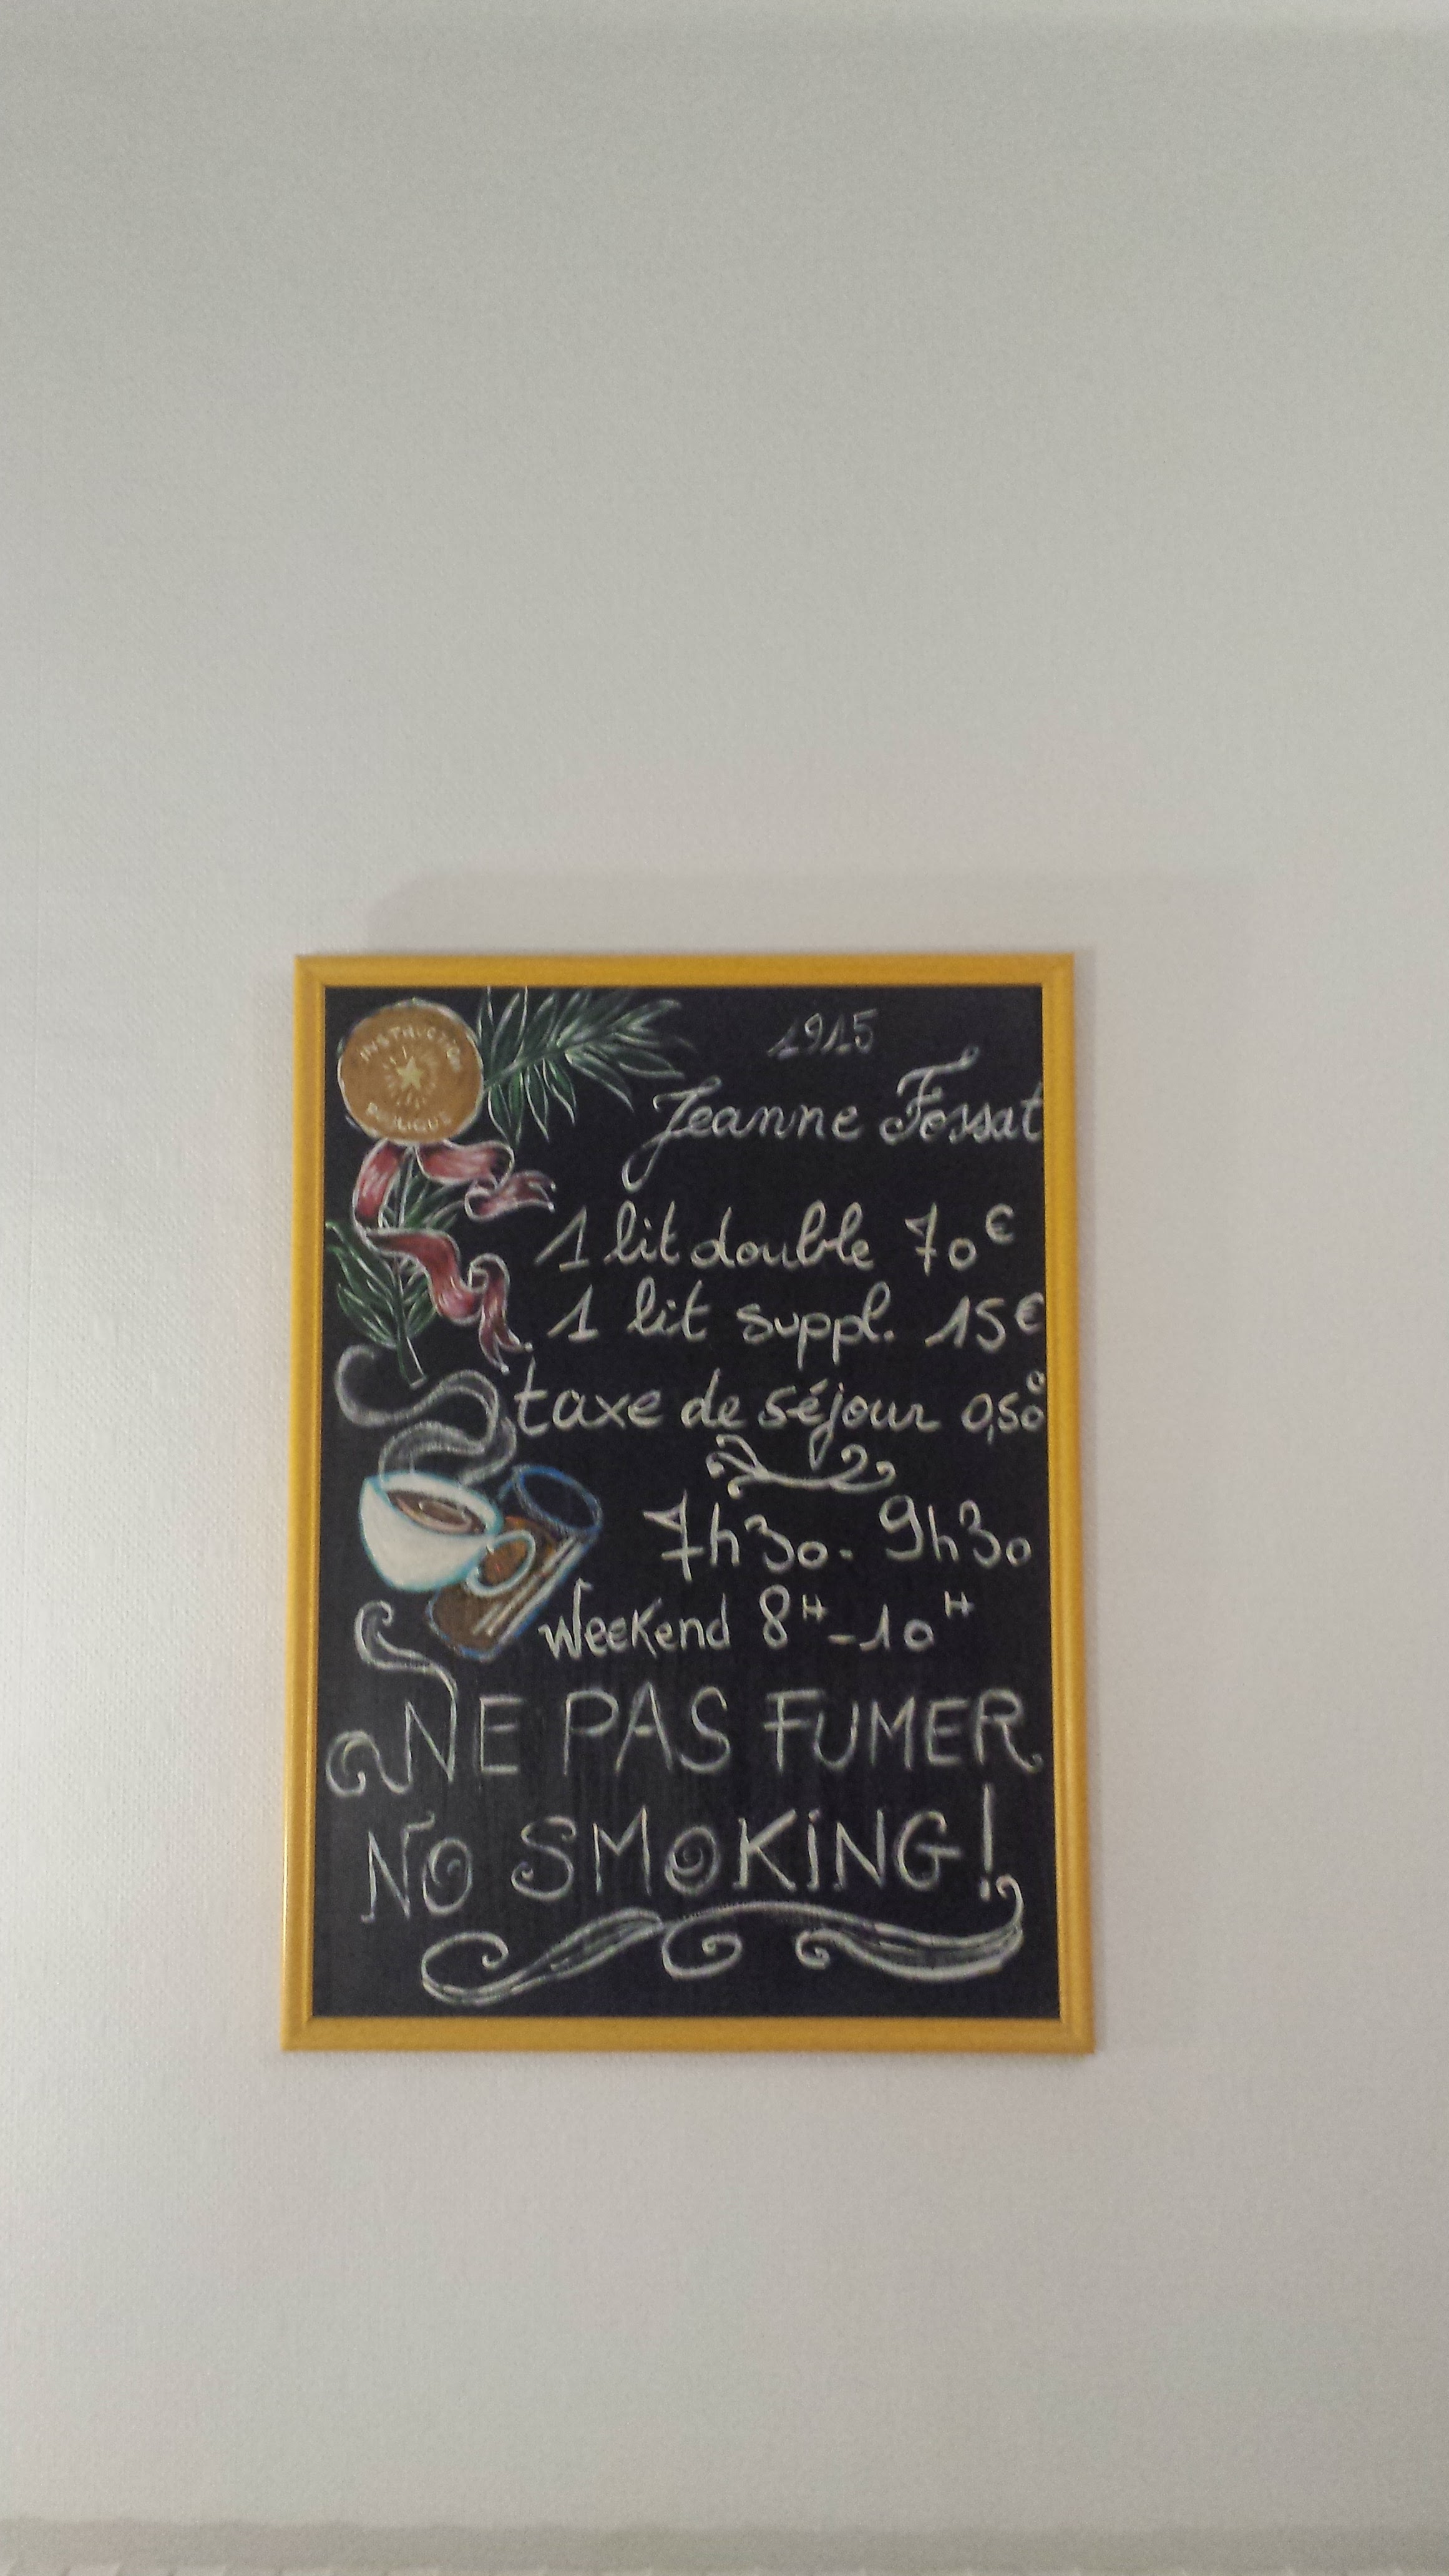 INSTRUCTION
PUBLIQUE
1915
Jeanne Fossat
1 lit double 70€
1 lit suppl. 15€
taxe de séjour 0,50
7h30. 9h30
Weekend 8H-10H
NE PAS FUMER
NO SMOKiNG!